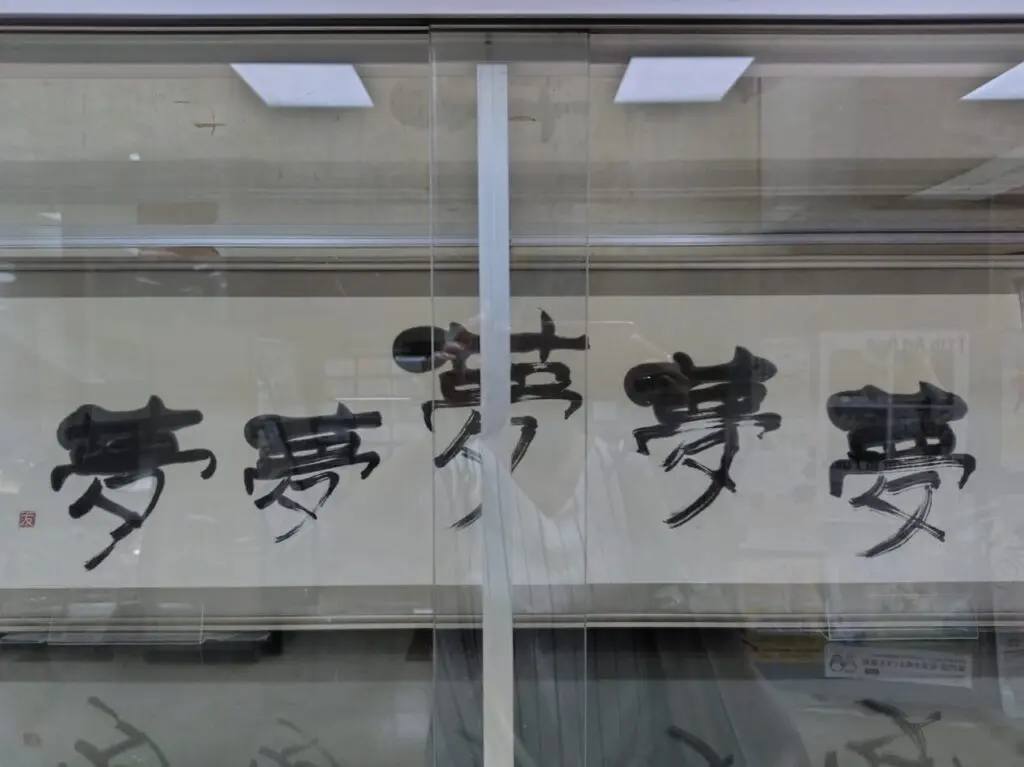 夢夢夢夢夢
友